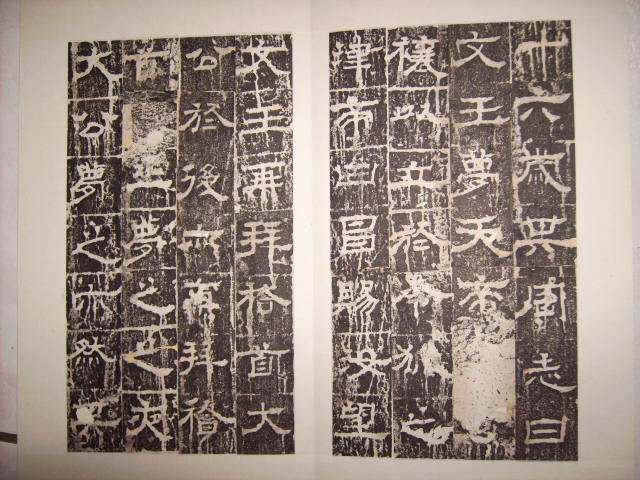 十六歲其周志曰
文王夢天帝
禳以立於令狐之
津帝曰昌賜汝望
文王再拜稽首大
公於後亦再拜稽
首王夢之之夜
大公夢之亦然其